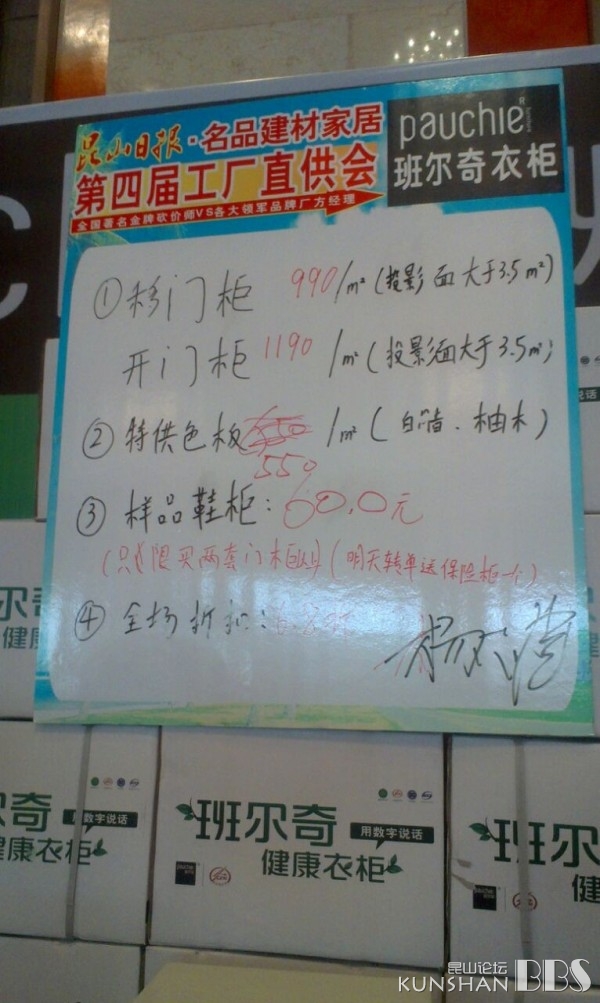 昆山日报·名品建材家居
第四届工厂直供会
全国著名金牌砍价师VS各大领军品牌厂方经理
pauchie®
班尔奇衣柜
①移门柜 990/m²(投影面大于3.5m²)
开门柜 1190/m²(投影面大于3.5m²)
②特供色板 550/m²(白 . 柚木)
③样品鞋柜:600.0元
(只限买两套门柜以 (明天转单送保险柜一个)
④全场折扣:6.8
班尔奇
用数字说话
健康衣柜
班尔奇
用数字说话
健康衣柜
pauchie
班尔
健
pauchie
昆山论坛
KUNSHAN BBS